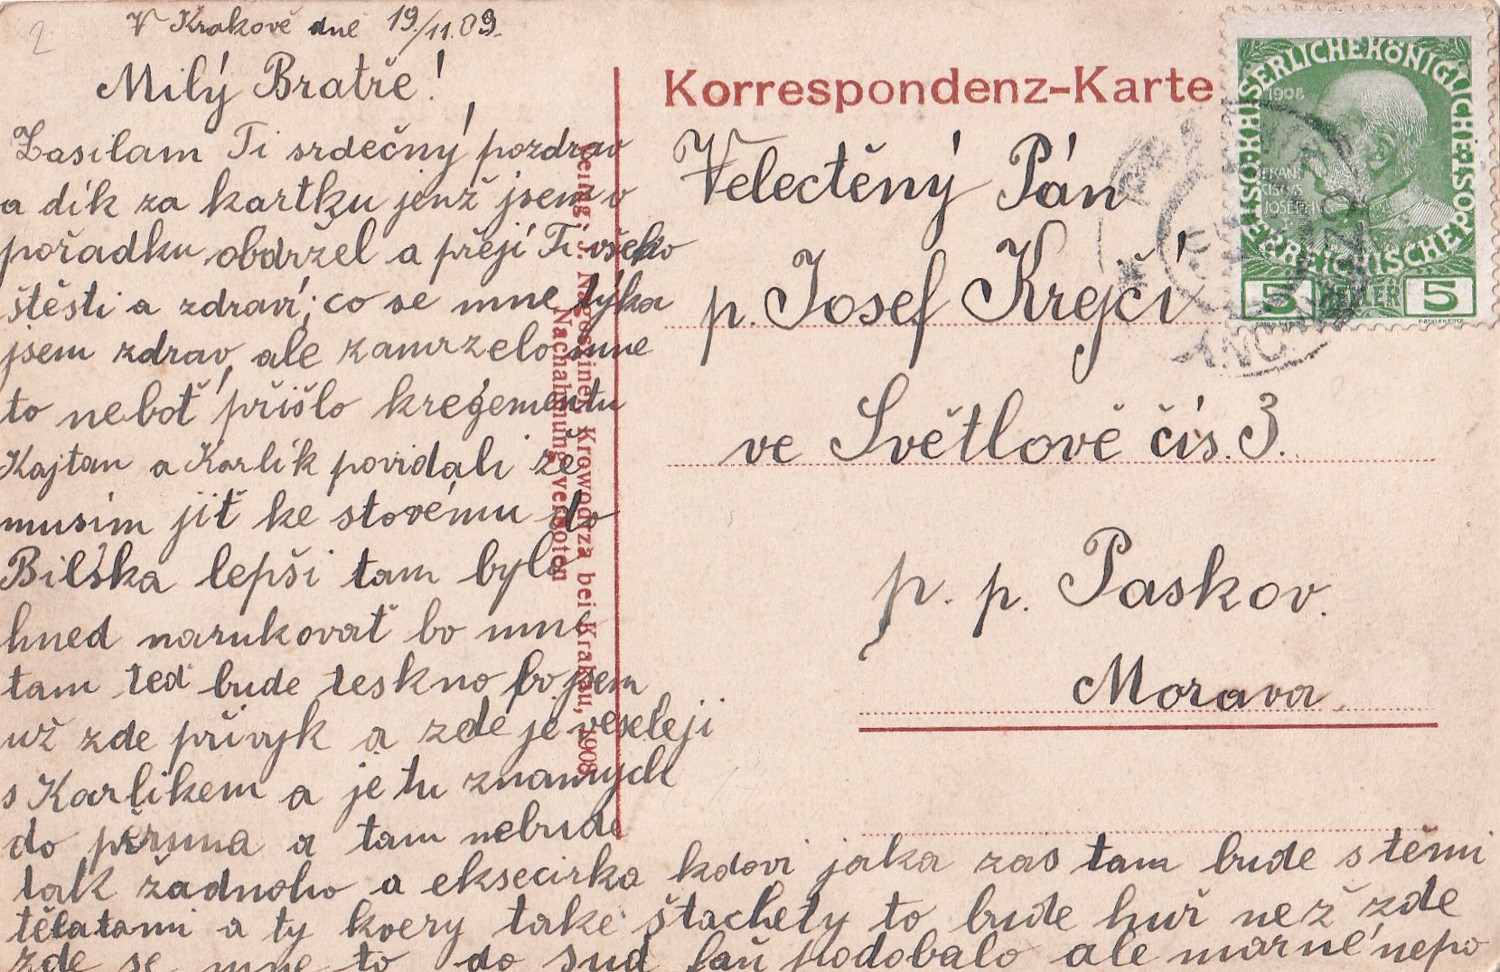 2
V Krakově dně 19/11.09.
Milý Bratře!
Zasilam Ti srdečný pozdrav
a dík za kartku jenž jsem v
pořadku obdržel a přejí Ti všeko
štěsti a zdraví; co se mne týka
jsem zdrav, ale zamrzelo mne
to neboť přišlo k regementu
Kajtan a Karlík povidali že
musim jiť ke stovému do
Bilska lepši tam bylo
hned narukovať bo mně
tam teď bude teskno bo jsem
už zde přivyk a zde je veseleji
s Karlikem a je tu znamych
do a tam nebude
tak žadnoho a eksecirka kdovi jaka zas tam bude s těmi
tělatami a ty kvery take štachety to bude huř než zde
zde se mne to do sud podobalo ale marné nepo
Korrespondenz-Karte
Velectěný Pán
p. Josef Krejčí
ve Světlově čís. 3.
p. p. Paskov.
Morava.
KAISERLICHE KÖNIGLICHE ÖSTERREICHISCHE POST
1908
FRANCISCUS JOSEPH I
5 HELLER 5
Krowodrza bei Krakau, 1908
Nachahmung verboten